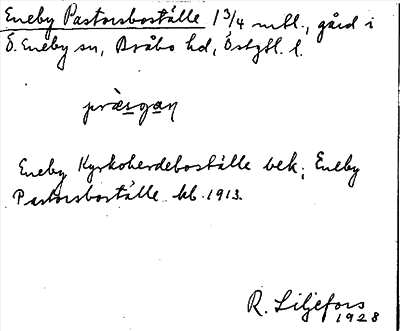 Eneby Pastorsboställe 1 3/4 mtl., gård i
Ö. Eneby sn, Bråbo hd, Östgtl. l.
præsgan
Eneby Kyrkoherdeboställe bek; Eneby
Pastorsboställe kb. 1913.
R. Liljefors
1928